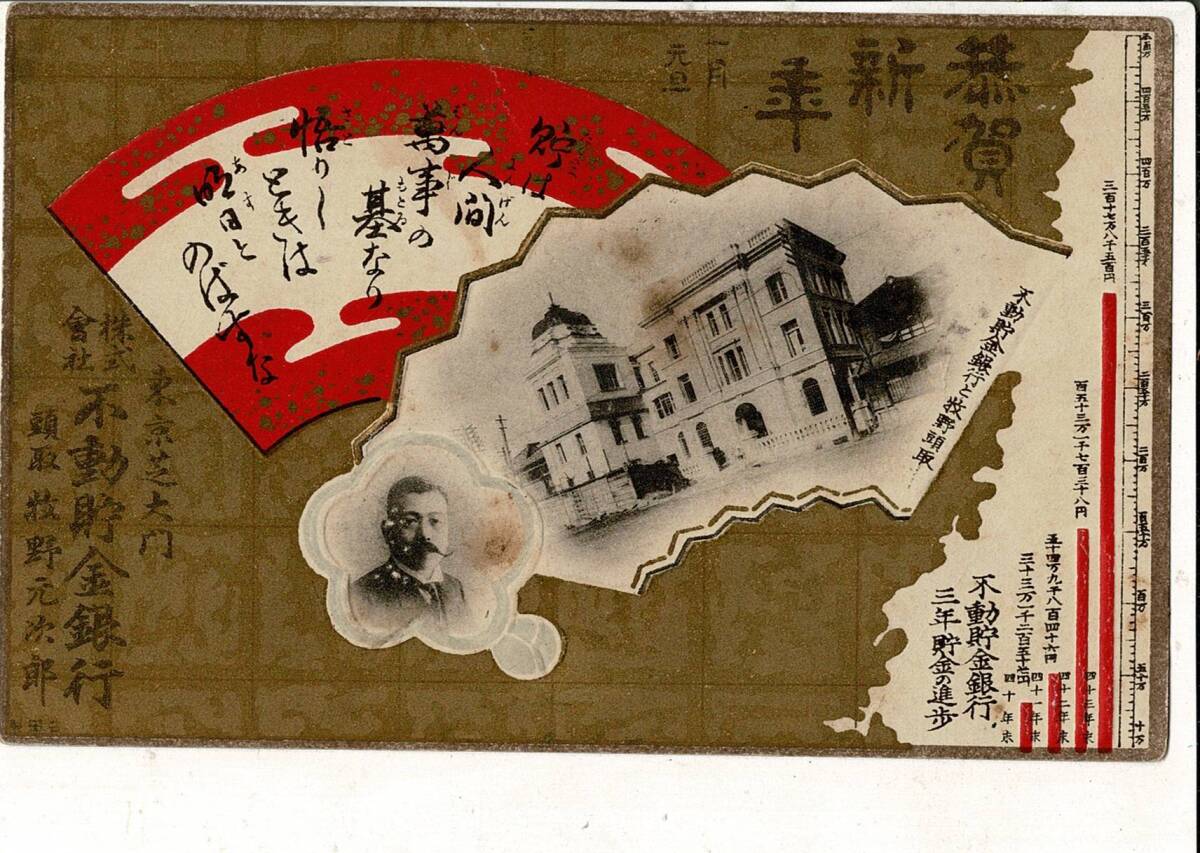 恭賀
新
年
一月
元旦
は
人間
萬事の
基なり
悟りし
ときは
明日と
のばすな
不動貯金銀行と牧野頭取
東京芝大門
株式
會社
不動貯金銀行
頭取 牧野元次郎
五百万
四百五十万
四百万
三百五十万
三百万
二百五十万
二百万
百五十万
百万
五十万
十万
三百十七万八千五百円
百五十三万一千七百三十八円
五十四万九千八百四十六円
三十三万一千二百五十七円
四十三年末
四十二年末
四十一年末
四十年末
不動貯金銀行
三年貯金の進歩